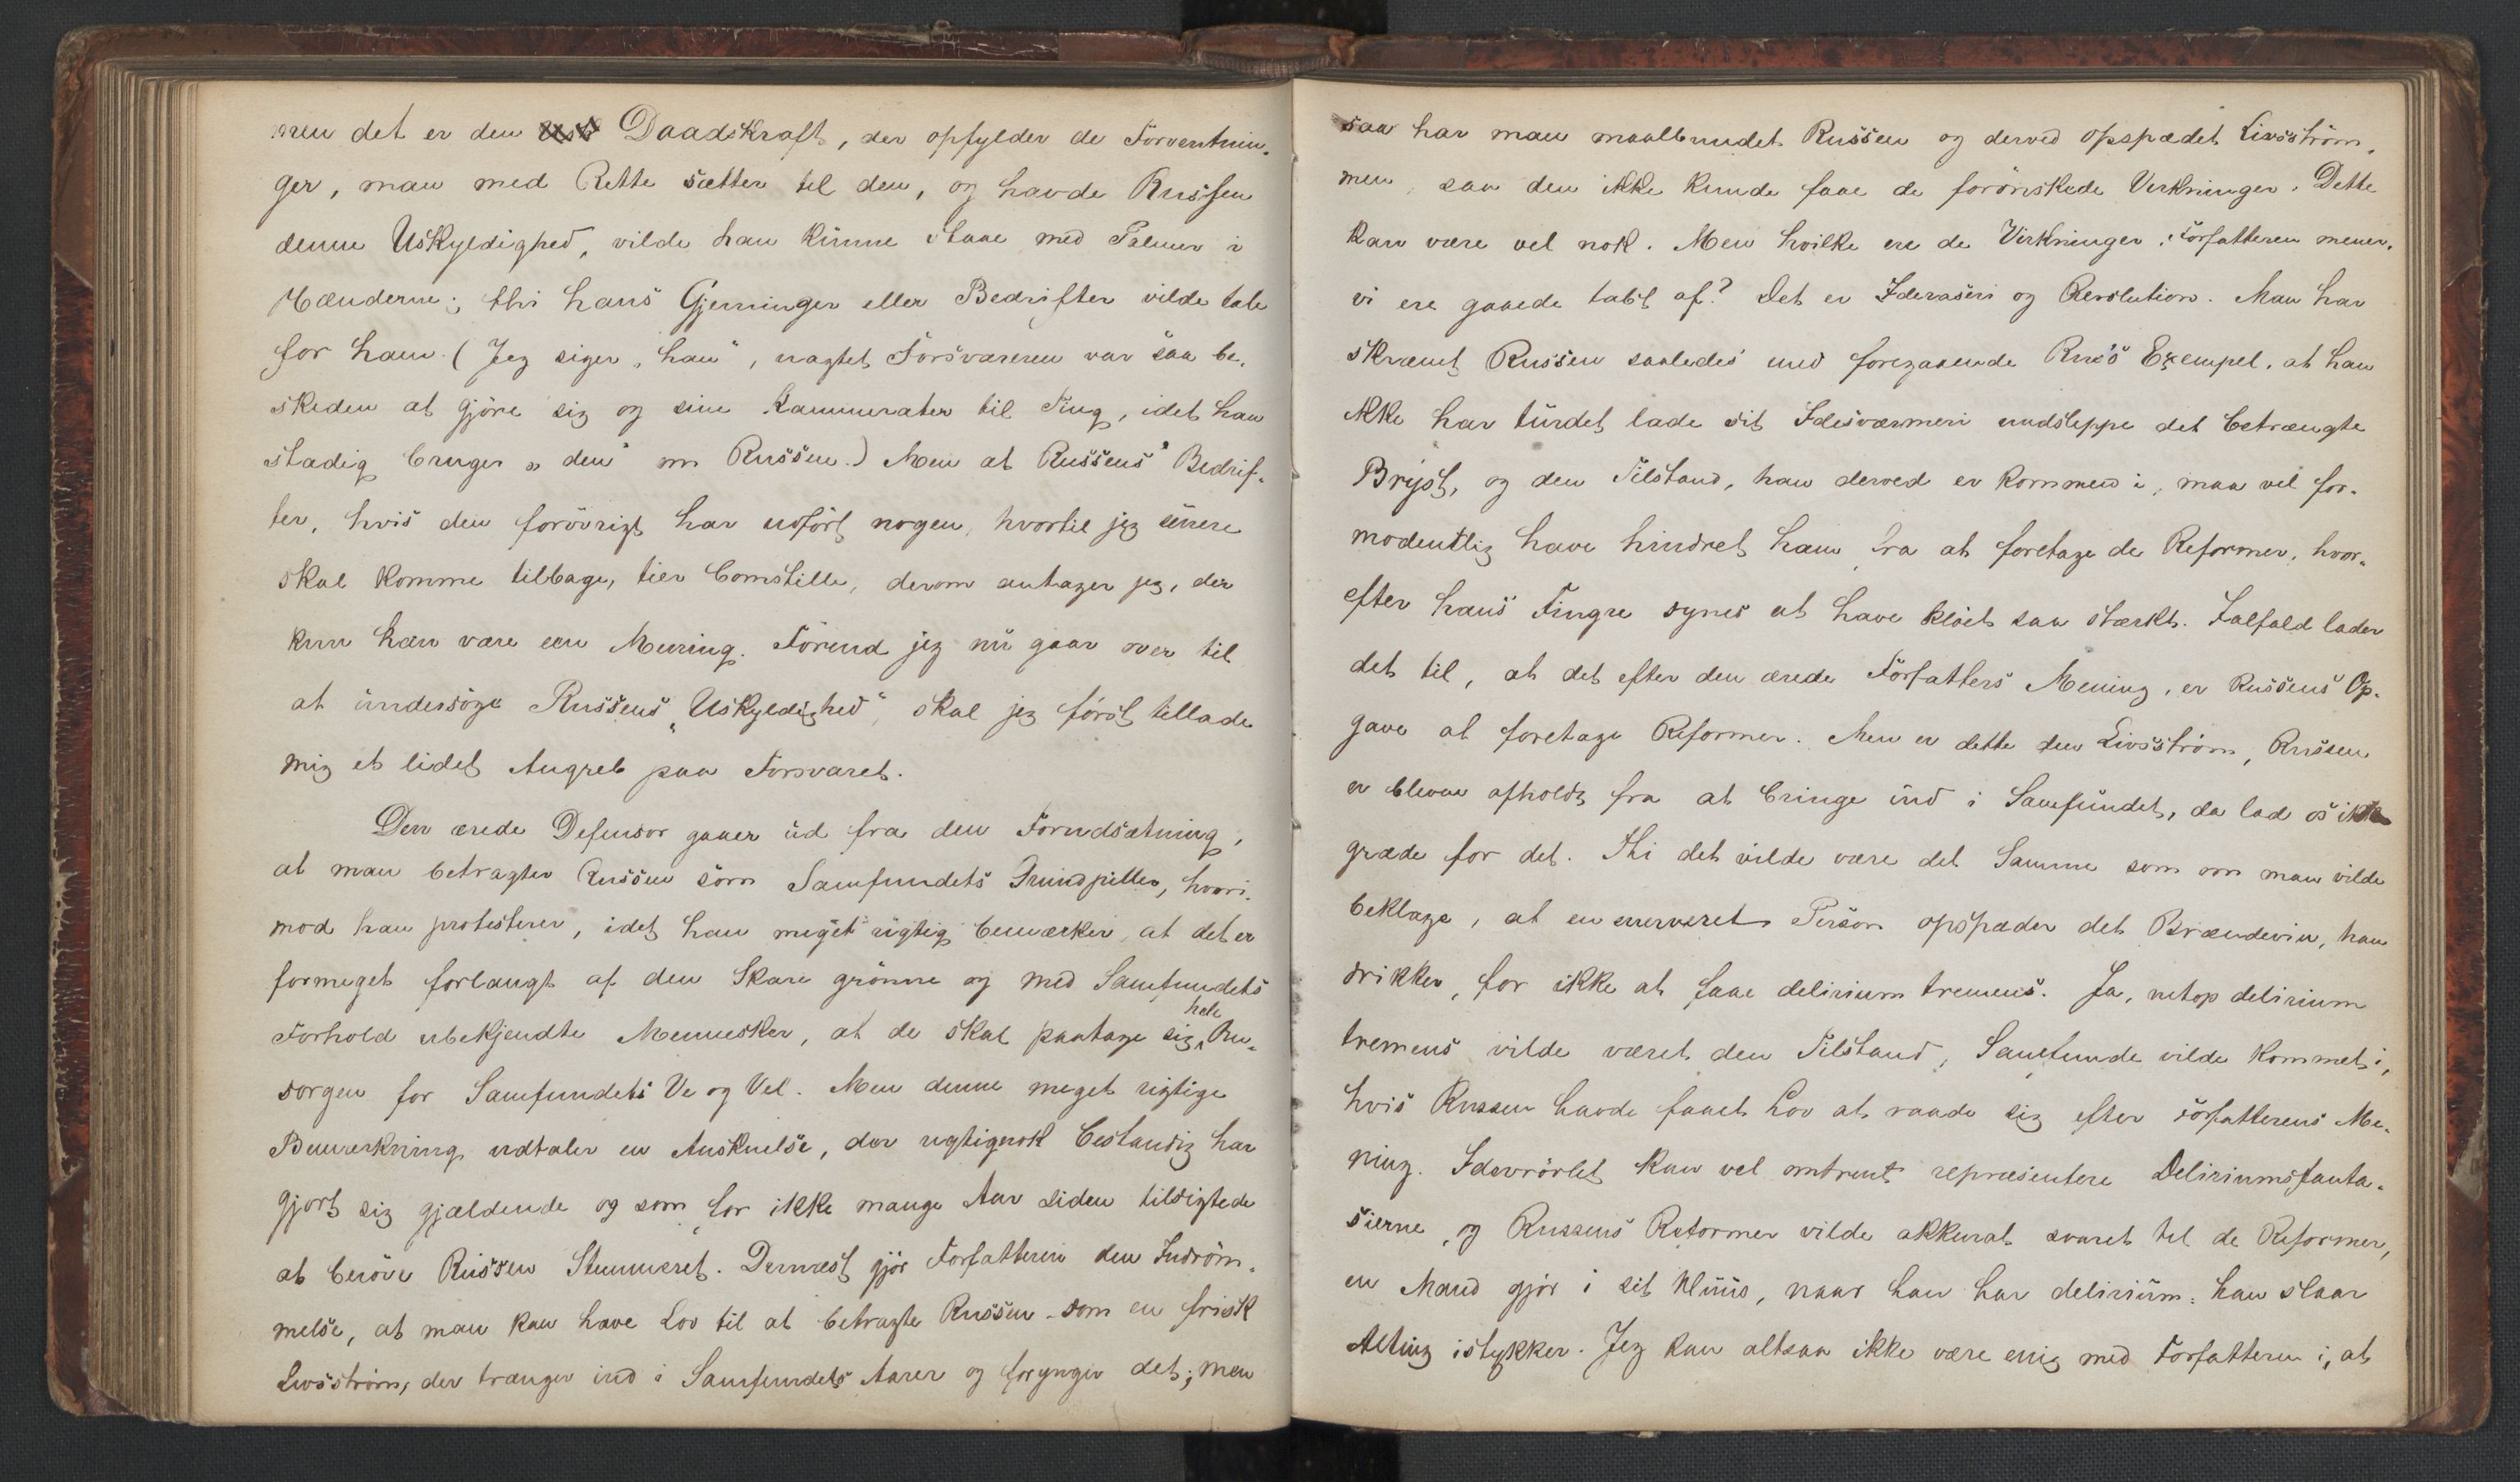 men det er den Daadskraft, der opfylder de Forventnin-
ger, man med Rette sætter til den, og havde Russen
denne Uskyldighed, vilde han kunne staae med Palmer i
Hænderne; thi hans Gjerninger eller Bedrifter vilde tale
for ham. (Jeg siger „han“, uagtet Forsvareren var saa be-
skeden at gjöre sig og sine Kammerater til Ting, idet han
stadig bruger „den“ om Russen.) Men at Russens Bedrif-
ter, hvis den forövrigt har udfört nogen, hvortil jeg senere
skal komme tilbage, tier bomstille, derom antager jeg, der
kun kan være een Mening. Förend jeg nu gaar over til
at undersöge Russens „Uskyldighed“, skal jeg först tillade
mig et lidet Angreb paa Forsvaret.
Den ærede Defensor gaaer ud fra den Forudsætning,
at man betragter Russen som Samfundets Grundpiller, hvori-
mod han protesterer, idet han meget rigtig bemærker, at det er
formeget forlangt af den Skare grönne og med Samfundets
Forhold ubekjendte Mennesker, at de skal paatage sig hele Om-
sorgen for Samfundets Ve og Vel. Men denne meget rigtige
Bemærkning udtaler en Anskuelse, der rigtignok bestandig har
gjort sig gjældende og som for ikke mange Aar siden tilsigtede
at beröve Russen Stemmeret. Dernæst gjör Forfatteren den Indröm-
melse, at man kan have Lov til at betragte Russen som en frisk
Livsström, der trænger ind i Samfundets Aarer og forynger det; men
saa har man maalbundet Russen og derved opspædet Livsström-
men, saa den ikke kunde faae de forönskede Virkninger. Dette
kan være vel nok. Men hvilke ere de Virkninger, Forfatteren mener,
vi ere gaaede tabt af? Det er Ideraseri og Revolution. Man har
skræmt Russen saaledes med foregaaende Rus's Exempel, at han
ikke har turdet lade sit Idesværmeri undslippe det betrængte
Bryst, og den Tilstand, han derved er kommen i, maa vel for-
modentlig have hindret ham fra at foretage de Reformer, hvor-
efter hans Fingre synes at have klöet saa stærkt. Ialfald lader
det til, at det efter den ærede Forfatters Mening, er Russens Op-
gave at foretage Reformer. Men er dette den Livsström, Russen
er bleven afholdt fra at bringe ind i Samfundet, da lad os ikke
græde for det. Thi det vilde være det Samme som om man vilde
beklage, at en enerveret Person opspæder det Brændevin, han
drikker, for ikke at faae delirium tremens. Ja, netop delirium
tremens vilde været den Tilstand, Samfunde vilde kommet i,
hvis Russen havde faaet Lov at raade sig efter Forfatterens Me-
ning. Idevrövlet kan vel omtrent repræsentere Deliriumsfanta-
sierne, og Russens Reformer vilde akkurat svaret til de Reformer,
en Mand gjör i sit Huus, naar han har delirium: han slaar
Alting istykker. Jeg kan altsaa ikke være enig med Forfatteren i, at